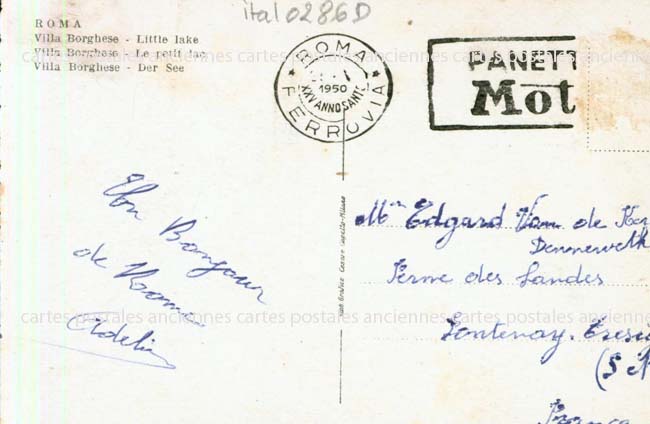 ital 0286D
ROMA
Villa Borghese - Little lake
Villa Borghese - Le petit lac
Villa Borghese - Der See
ROMA
1950
XXV ANNO SANTO
FERROVIA
PANETT
Mot
cartes postales anciennes cartes postales anciennes cartes postales anciennes
Bonjour
de Rome
Adelin
Edgard Vam de
Ferme des Landes
Fontenay. Tresig
(S
France
cartes postales anciennes cartes postales anciennes cartes postales anciennes